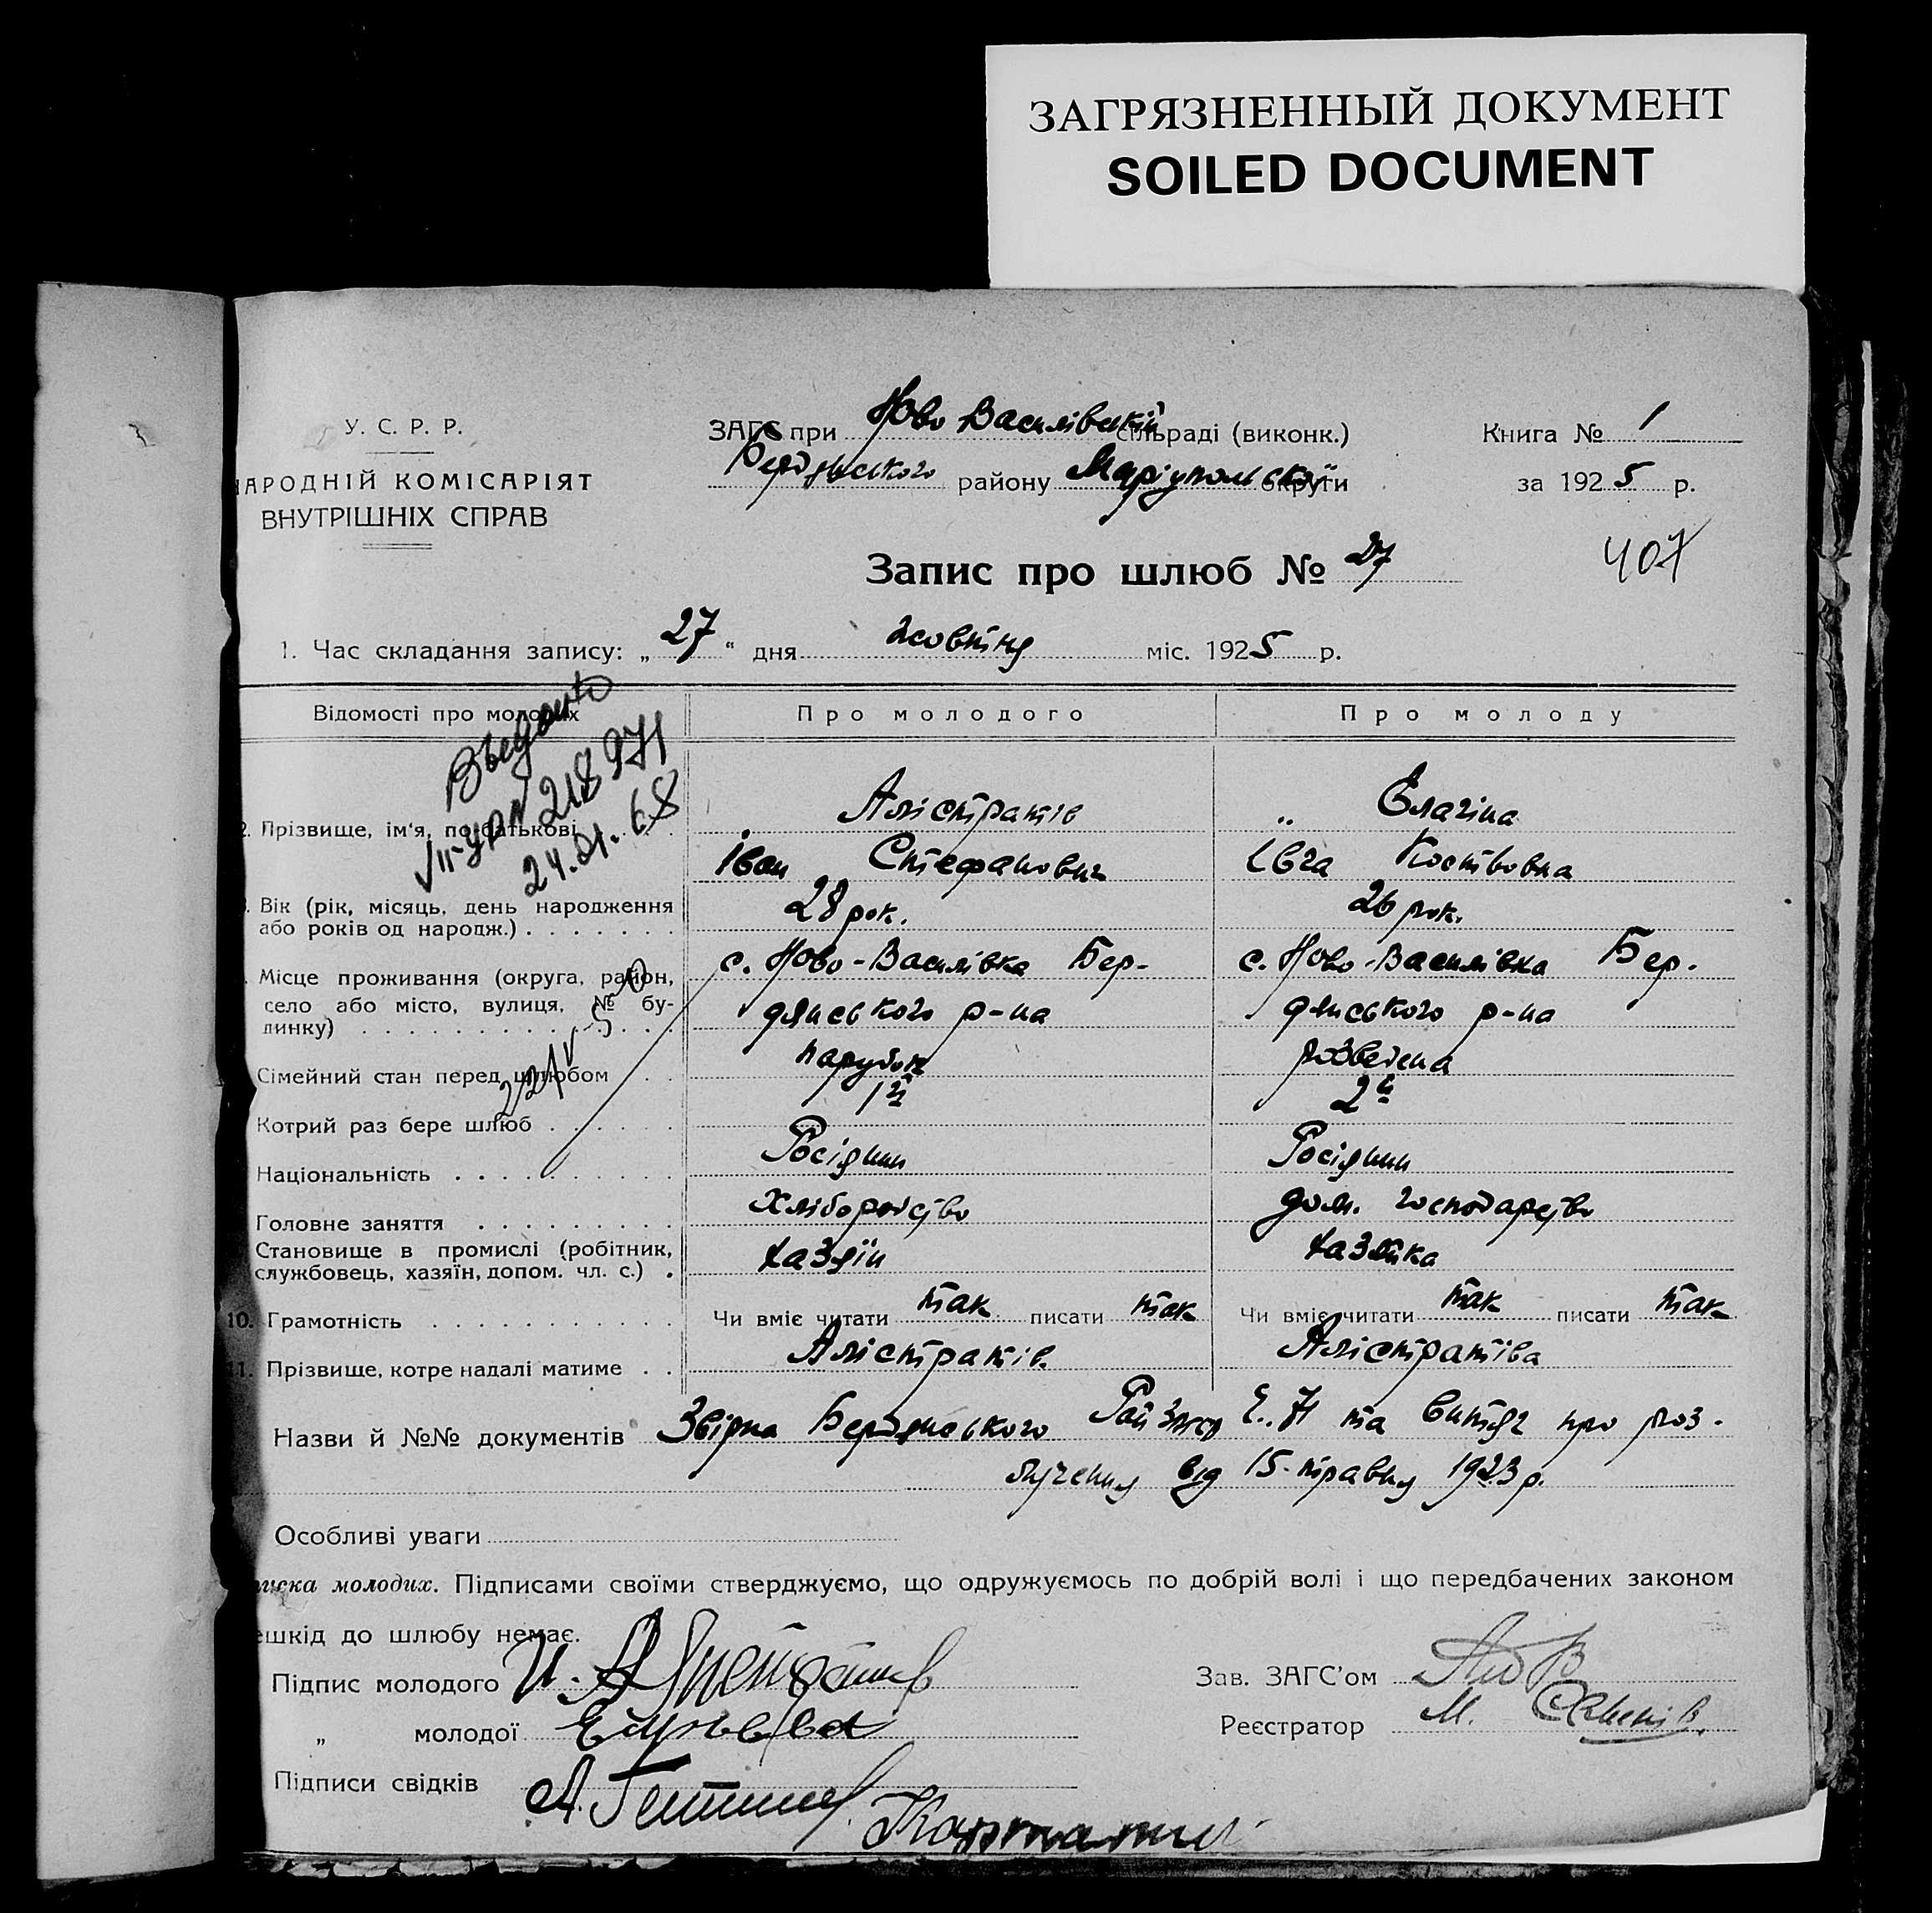 ЗАГРЯЗНЕННЫЙ ДОКУМЕНТ
SOILED DOCUMENT
У. С. Р. Р.
НАРОДНІЙ КОМІСАРІЯТ
ВНУТРІШНІХ СПРАВ
ЗАГС при Ново Василівській сільраді (виконк.)
Бердянського району Маріупольської округи
Книга № 1
за 1925 р.
Запис про шлюб № 27
407
1. Час складання запису: „27" дня жовтня міс. 1925 р.
Відомості про молодих
Про молодого
Про молоду
218971
24.01.68
2. Прізвище, ім'я, по батькові
Алістратів
Іван Стефанович
„ Єлагіна
Івга Костівовна
Вік (рік, місяць, день народження
або років од народж.)
28 рок.
26 рок.
Місце проживання (округа, район,
село або місто, вулиця, № бу-
динку)
с. Ново-Василівка Бер-
дянського р-на
с. Ново-Василівка Бер-
дянського р-на
Сімейний стан перед шлюбом
парубок
розведена
Котрий раз бере шлюб
1й
2й
Національність
Росіянин
Росіянин
Головне заняття
хліборобство
дом. господарство
Становище в промислі (робітник,
службовець, хазяїн, допом. чл. с.)
хазяїн
хазяйка
10. Грамотність
Чи вміє читати так писати так
Чи вміє читати так писати так
11. Прізвище, котре надалі матиме
Алістратів
Алістратіва
Назви й №№ документів Бердянського та витяг про роз-
лучення від 15-травня 1923 р.
Особливі уваги
писка молодих. Підписами своїми стверджуємо, що одружуємось по добрій волі і що передбачених законом
ешкід до шлюбу немає.
Підпис молодого
„ молодої
Підписи свідків
Зав. ЗАГС'ом
Реєстратор М.